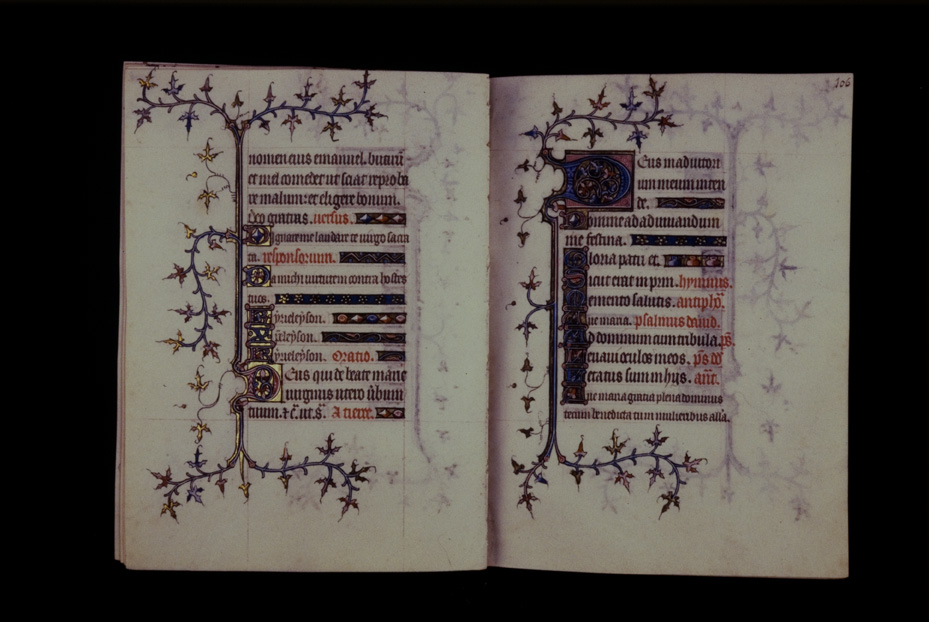 nomen eius emanuel. butirū
et mel comedet ut sciat reproba
re malum: et eligere bonum.
Deo gratias. uersus.
Dignare me laudare te uirgo sacra
ta. responsorium.
Da michi uirtutem contra hostes
tuos.
Kyrieleyson.
Xp̄eleyson.
Kyrieleyson. Oratio.
Deus qui de beate marie
uirginis utero uerbum
tuum. Ad tierce.
106
Deus in adiutori
um meum inten
de.
Domine ad adiuuandum
me festina.
Gloria patri et.
Sicut erat in prin. hympnus.
Memento salutis. antiphō.
Aue maria. psalmus dauid.
Ad dominum cum tribula. ps̄.
Leuaui oculos meos. ps̄ dd̄
Letatus sum in hys. ant̄.
Aue maria gratia plena dominus
tecum benedicta tu in mulieribus alla.